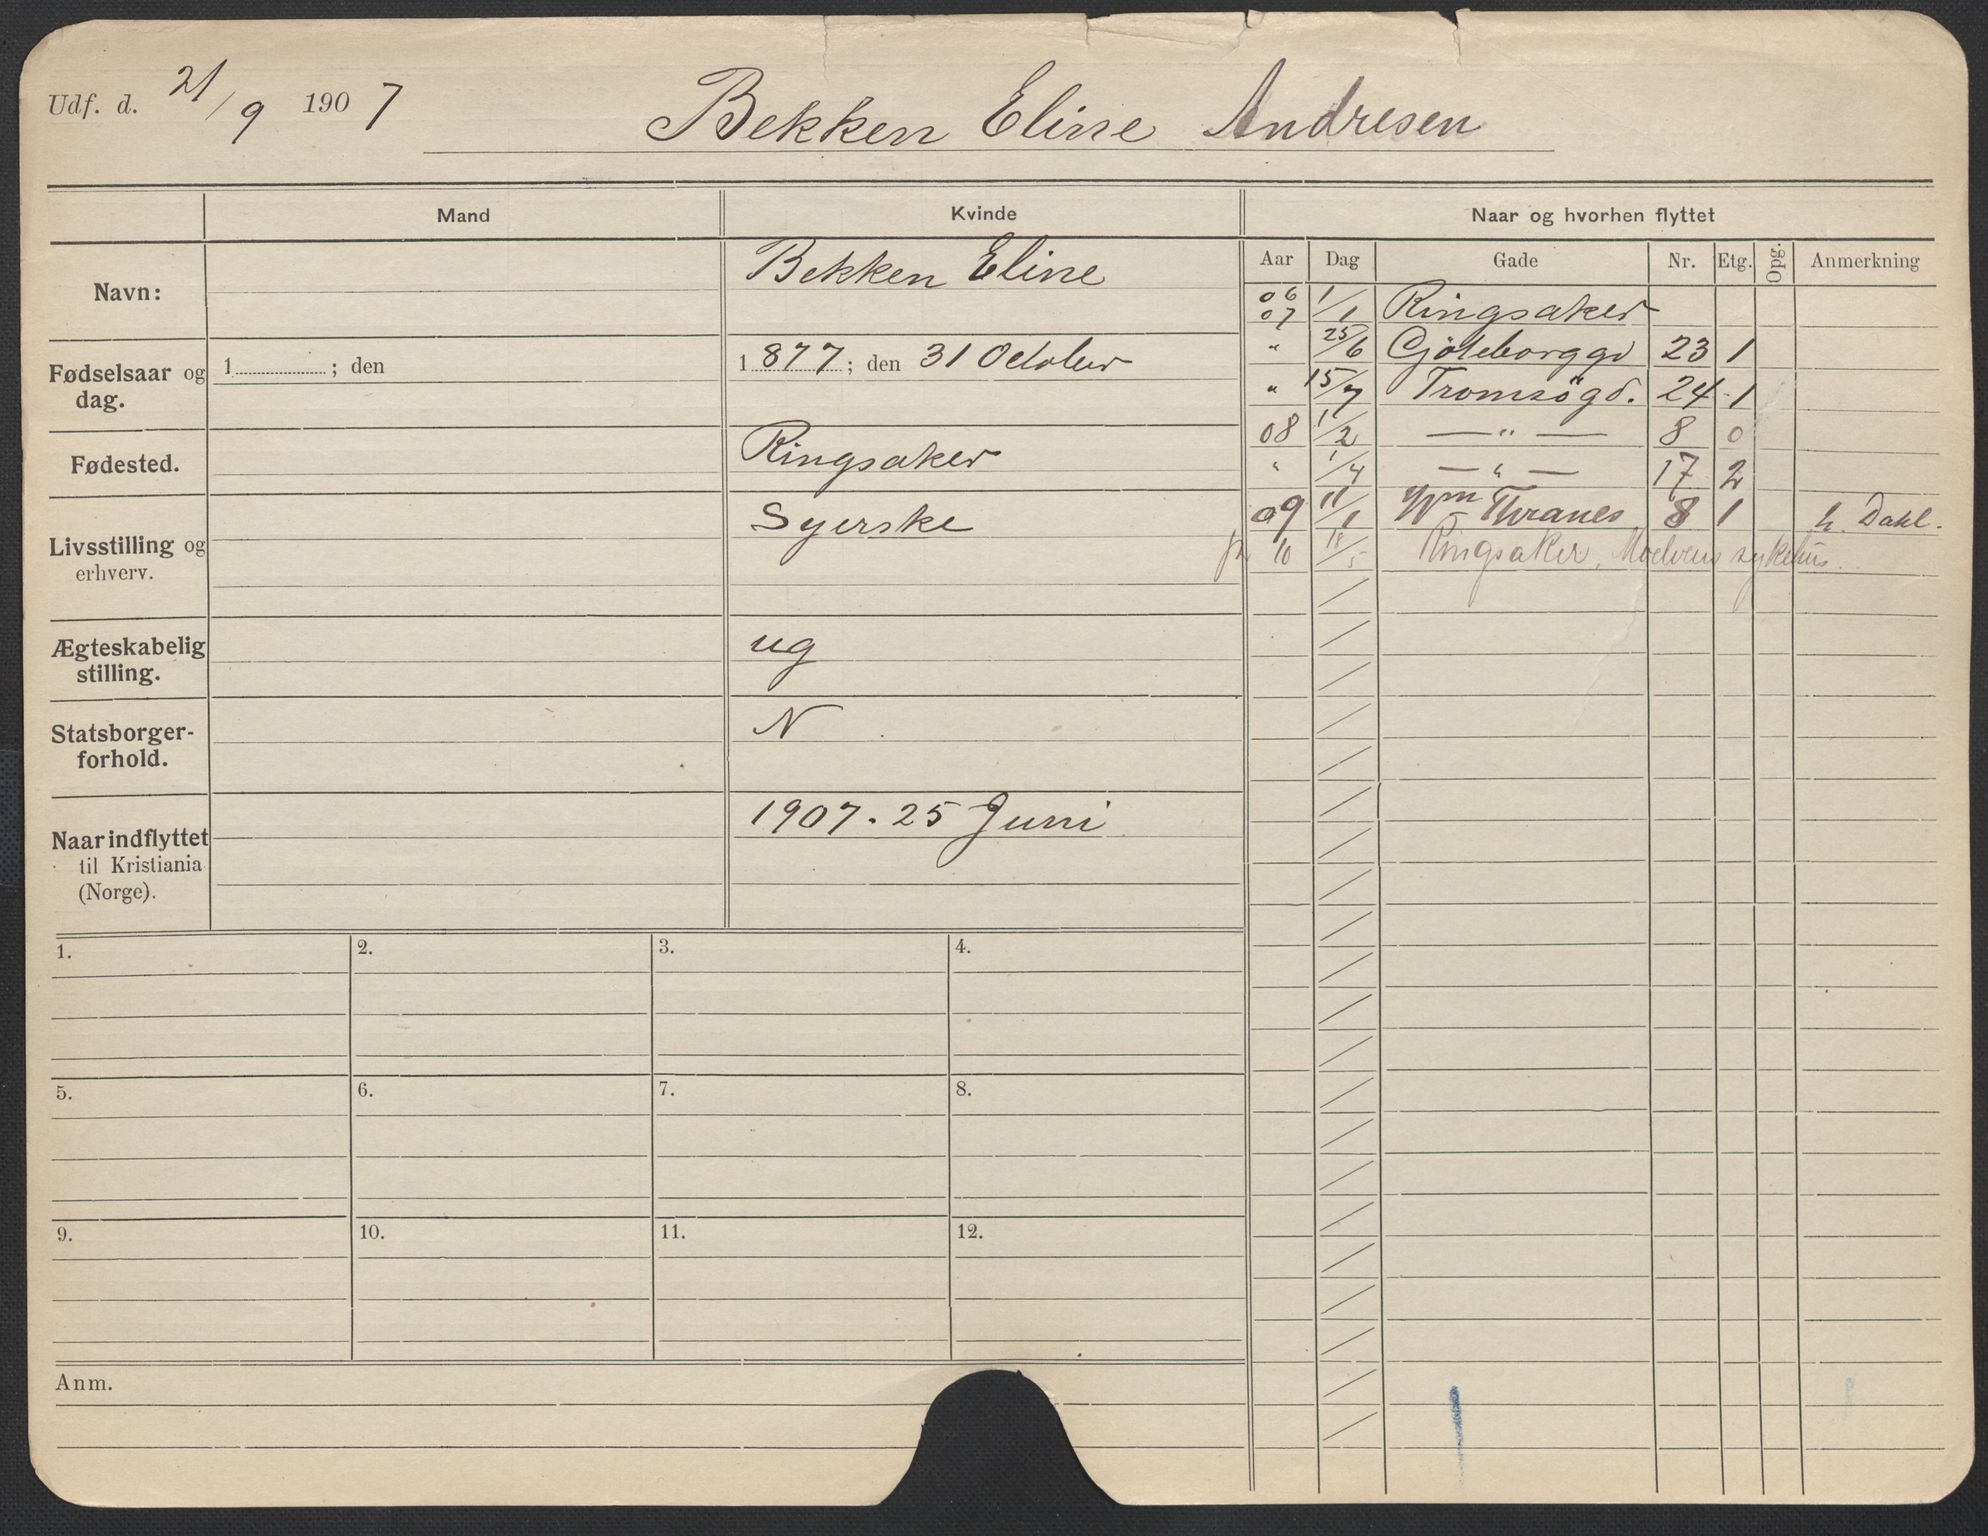 Udf. d. 21/9 1907 Bekken Eline Andresen
Mand Kvinde Naar og hvorhen flyttet
Navn: Bekken Eline
Fødselsaar og dag. 1 ; den 1877; den 31 October
Fødested. Ringsaker
Livsstilling og erhverv. Syerske
Ægteskabelig stilling. ug
Statsborgerforhold. N
Naar indflyttet til Kristiania (Norge). 1907. 25 Juni
Aar Dag Gade Nr. Etg. Opg. Anmerkning
06 07 1/1 Ringsaker
" 25/6 Gjöteborggd 23 1
" 15/7 Tromsögd. 24 1
08 1/2 — " — 8 0
" 1/4 — " — 17 2
09 11/1 Wm Thranes 8 1 h. Dahl.
10 18/5 Ringsaker, Moelvens sykehus.
1. 2. 3. 4.
5. 6. 7. 8.
9. 10. 11. 12.
Anm.